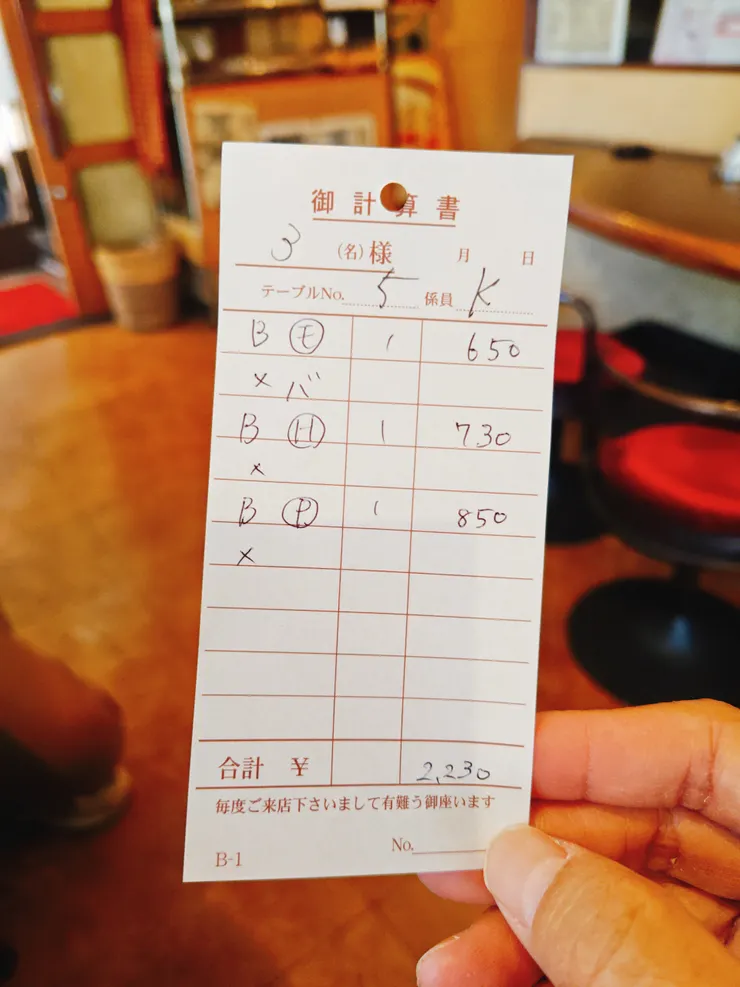 御計算書
3 (名)様 月 日
テーブルNo. 5 係員 K
B モ 1 650
× バ
B H 1 730
×
B P 1 850
×
合計 ¥ 2,230
毎度ご来店下さいまして有難う御座います
B-1 No.